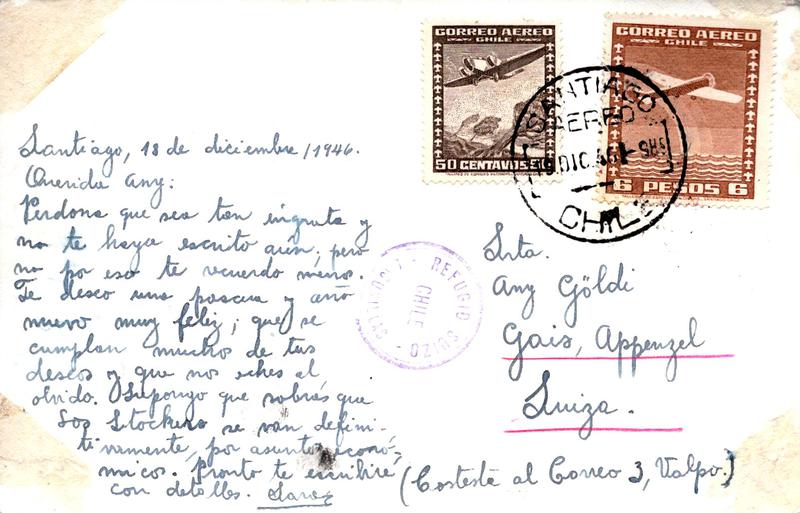 Santiago, 18 de diciembre/1946.
Querida Any:
Perdona que sea tan ingrata y
no te haya escrito aún; pero
no por eso te recuerdo menos.
Te deseo una pascua y año
nuevo muy feliz; que se
cumplan muchos de tus
deseos y que nos eches al
olvido. Supongo que sabrás que
los Stockers se van defini-
tivamente, por asuntos econó-
micos. Pronto te escribiré
con detalles.
CORREO AEREO
CHILE
50 CENTAVOS 50
CORREO AEREO
CHILE
6 PESOS 6
SANTIAGO
AEREO
19 DIC. 46
CHILE
REFUGIO SUIZO
CHILE
Srta.
Any Göldi
Gais, Appenzel
Suiza.
(Conteste al Correo 3, Valpo.)